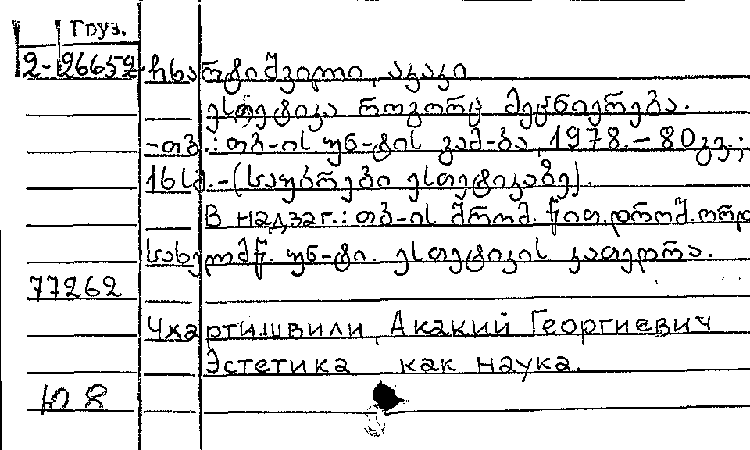 Груз.
2-26652 ჩხარტიშვილი, აკაკი
ესთეტიკა როგორც მეცნიერება.
-თბ.: თბ-ის უნ-ტის გამ-ბა, 1978.-80გვ.;
16სმ.-(საუბრები ესთეტიკაზე).
В надзаг.: თბ-ის შრომ. წით. დროშ. ორდ.
სახელმწ. უნ-ტი. ესთეტიკის კათედრა.
77262
Чхартишвили, Акакий Георгиевич
Эстетика как наука.
Ю 8